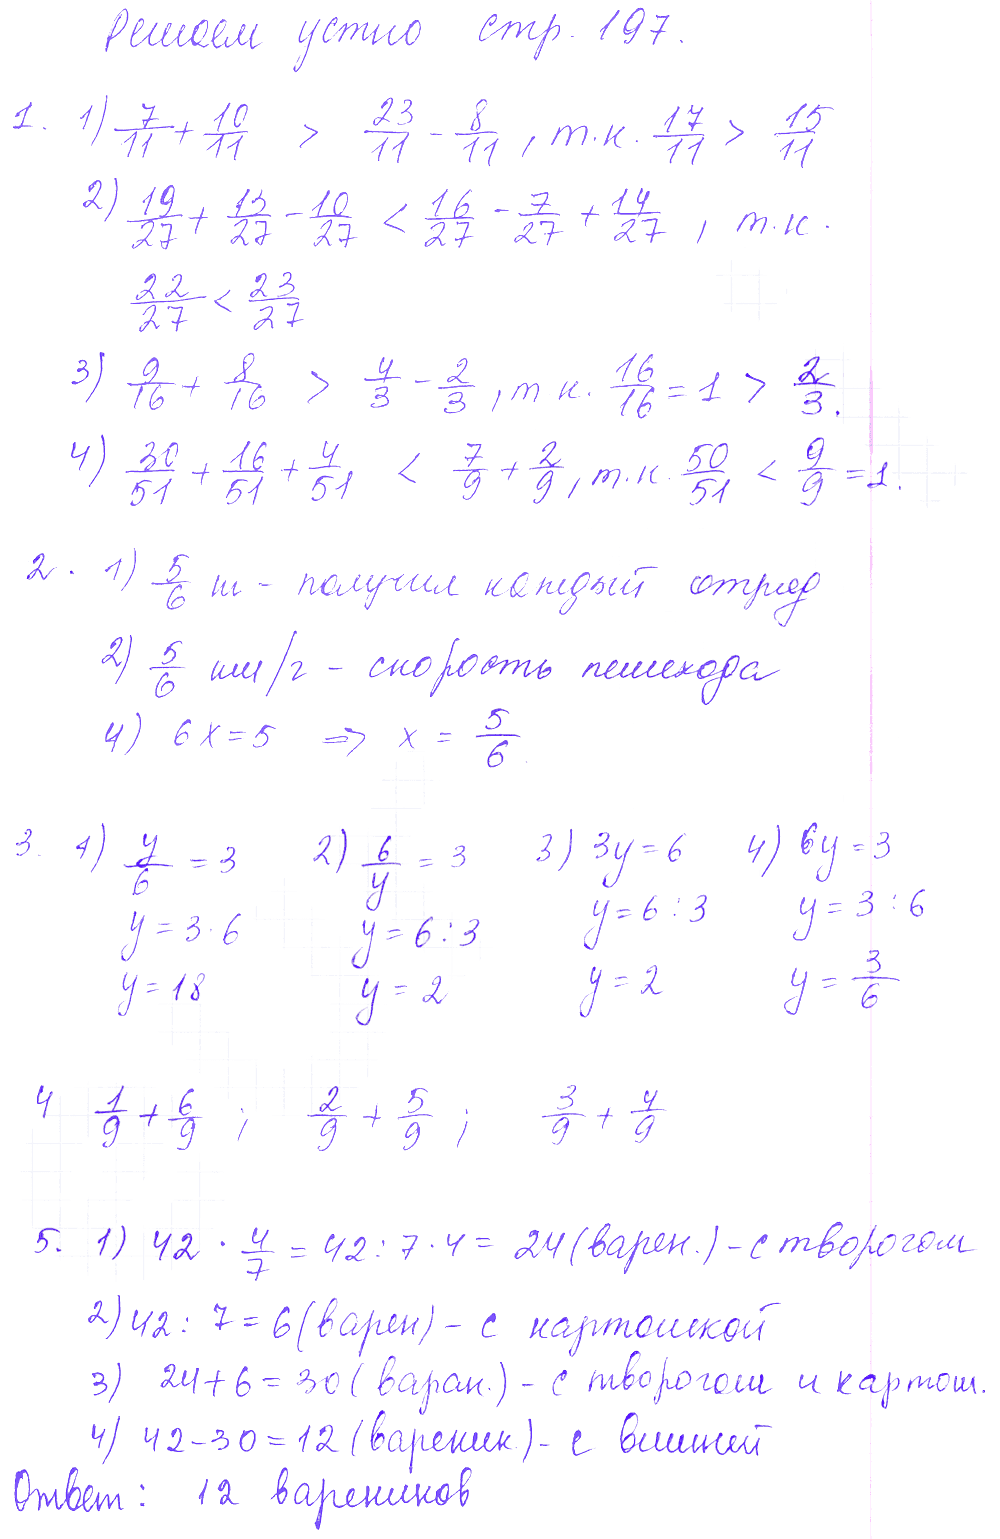 Решаем устно стр. 197.
1. 1) 7/11 + 10/11 > 23/11 - 8/11, т.к. 17/11 > 15/11
2) 19/27 + 13/27 - 10/27 < 16/27 - 7/27 + 14/27, т.к.
22/27 < 23/27
3) 9/16 + 8/16 > 4/3 - 2/3, т к. 16/16 = 1 > 2/3.
4) 30/51 + 16/51 + 4/51 < 7/9 + 2/9, т.к. 50/51 < 9/9 = 1.
2. 1) 5/6 т - получил каждый отряд
2) 5/6 км/ч - скорость пешехода
4) 6x = 5 => x = 5/6
3. 1) y/6 = 3 2) 6/y = 3 3) 3y = 6 4) 6y = 3
y = 3·6 y = 6:3 y = 6:3 y = 3:6
y = 18 y = 2 y = 2 y = 3/6
4 1/9 + 6/9 ; 2/9 + 5/9 ; 3/9 + 4/9
5. 1) 42 · 4/7 = 42:7·4 = 24 (варен.) - с творогом
2) 42:7 = 6 (варен) - с картошкой
3) 24+6 = 30 (варан.) - с творогом и картош.
4) 42-30 = 12 (вареник.) - с вишней
Ответ: 12 вареников